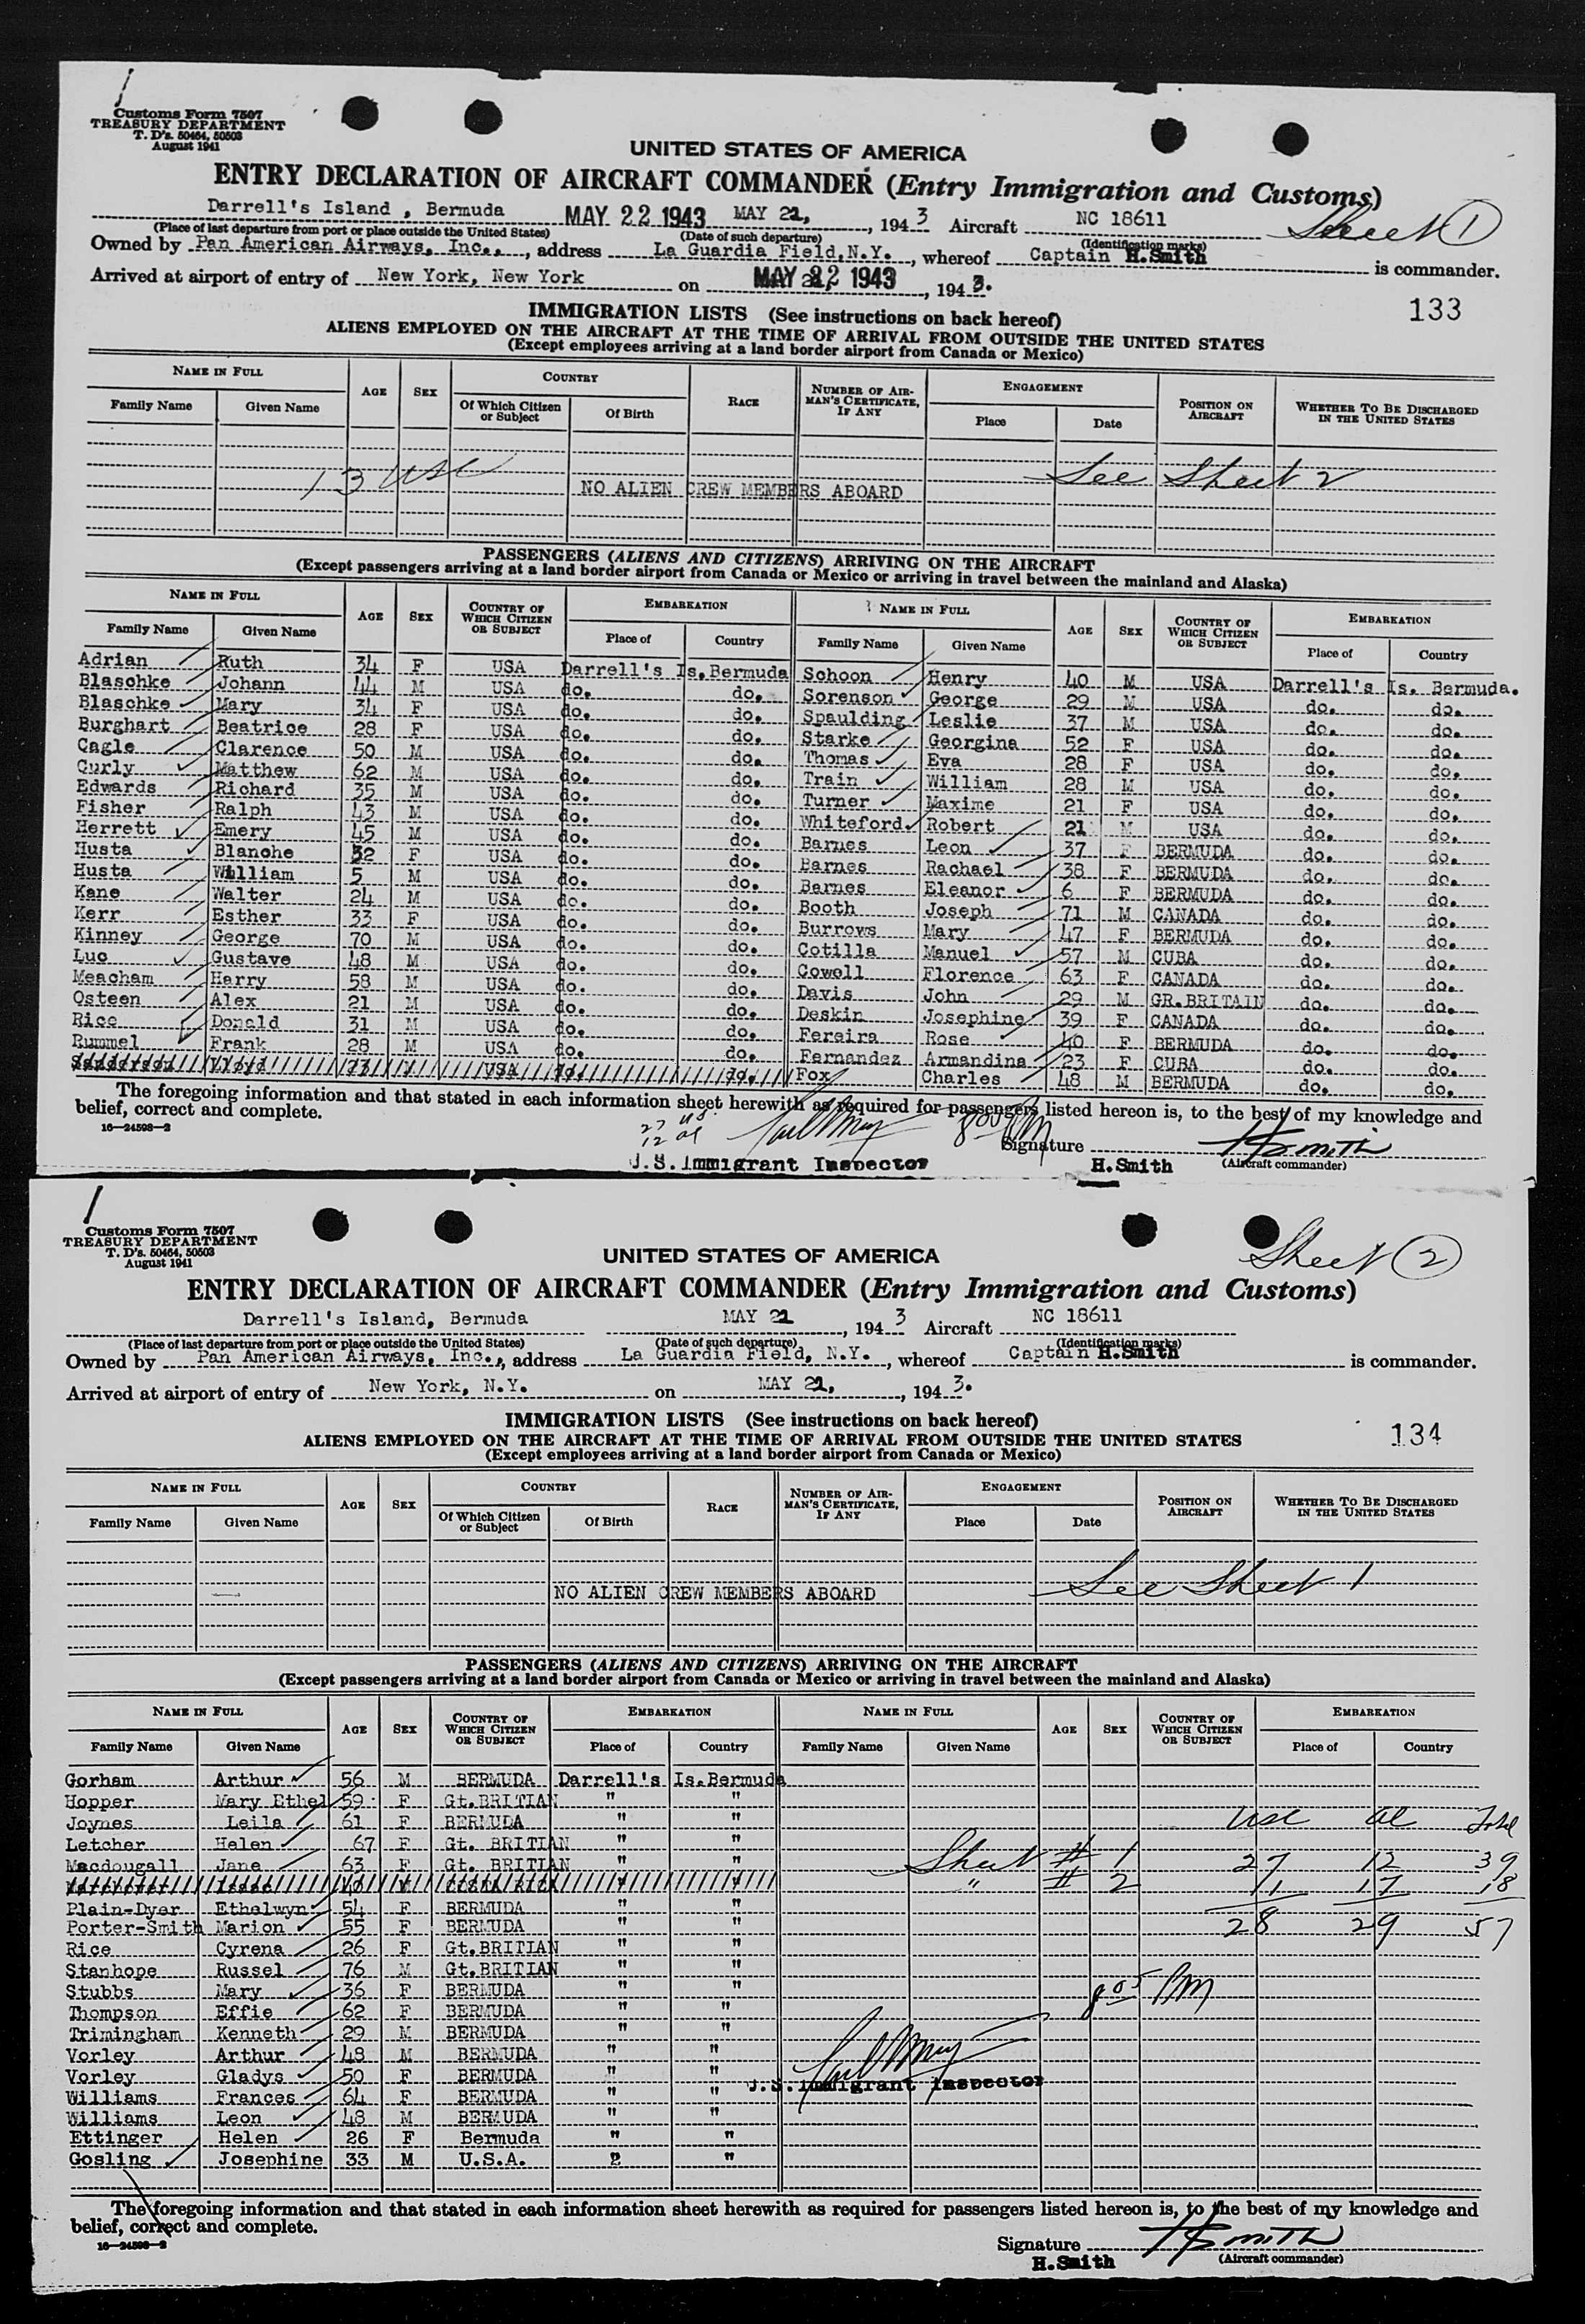 Customs Form 7507
TREASURY DEPARTMENT
T. D's. 50464, 50503
August 1941
UNITED STATES OF AMERICA
ENTRY DECLARATION OF AIRCRAFT COMMANDER (Entry Immigration and Customs)
Sheet 1
Darrell's Island , Bermuda MAY 22 1943 MAY 21, , 194 3 Aircraft NC 18611
(Place of last departure from port or place outside the United States) (Date of such departure) (Identification marks)
Owned by Pan American Airways, Inc., , address La Guardia Field, N.Y. , whereof Captain H.Smith is commander.
Arrived at airport of entry of New York, New York on MAY 22 1943 , 194 3.
133
IMMIGRATION LISTS (See instructions on back hereof)
ALIENS EMPLOYED ON THE AIRCRAFT AT THE TIME OF ARRIVAL FROM OUTSIDE THE UNITED STATES
(Except employees arriving at a land border airport from Canada or Mexico)
NAME IN FULL AGE SEX COUNTRY RACE NUMBER OF AIRMAN'S CERTIFICATE, IF ANY ENGAGEMENT POSITION ON AIRCRAFT WHETHER TO BE DISCHARGED IN THE UNITED STATES
Family Name Given Name Of Which Citizen or Subject Of Birth Place Date
13 USC See Sheet 2
NO ALIEN CREW MEMBERS ABOARD
PASSENGERS (ALIENS AND CITIZENS) ARRIVING ON THE AIRCRAFT
(Except passengers arriving at a land border airport from Canada or Mexico or arriving in travel between the mainland and Alaska)
NAME IN FULL AGE SEX COUNTRY OF WHICH CITIZEN OR SUBJECT EMBARKATION NAME IN FULL AGE SEX COUNTRY OF WHICH CITIZEN OR SUBJECT EMBARKATION
Family Name Given Name Place of Country Family Name Given Name Place of Country
Adrian Ruth 34 F USA Darrell's Is. Bermuda Schoon Henry 40 M USA Darrell's Is. Bermuda.
Blaschke Johann 44 M USA do. do. Sorenson George 29 M USA do. do.
Blaschke Mary 34 F USA do. do. Spaulding Leslie 37 M USA do. do.
Burghart Beatrice 28 F USA do. do. Starke Georgina 52 F USA do. do.
Cagle Clarence 50 M USA do. do. Thomas Eva 28 F USA do. do.
Curly Matthew 62 M USA do. do. Train William 28 M USA do. do.
Edwards Richard 35 M USA do. do. Turner Maxime 21 F USA do. do.
Fisher Ralph 43 M USA do. do. Whiteford Robert 21 M USA do. do.
Herrett Emery 45 M USA do. do. Barnes Leon 37 F BERMUDA do. do.
Husta Blanche 32 F USA do. do. Barnes Rachael 38 F BERMUDA do. do.
Husta William 5 M USA do. do. Barnes Eleanor 6 F BERMUDA do. do.
Kane Walter 24 M USA do. do. Booth Joseph 71 M CANADA do. do.
Kerr Esther 33 F USA do. do. Burrows Mary 47 F BERMUDA do. do.
Kinney George 70 M USA do. do. Cotilla Manuel 57 M CUBA do. do.
Luc Gustave 48 M USA do. do. Cowell Florence 63 F CANADA do. do.
Meacham Harry 58 M USA do. do. Davis John 29 M GR.BRITAIN do. do.
Osteen Alex 21 M USA do. do. Deskin Josephine 39 F CANADA do. do.
Rice Donald 31 M USA do. do. Fereira Rose 40 F BERMUDA do. do.
Rummel Frank 28 M USA do. do. Fernandez Armandina 23 F CUBA do. do.
Sanderson Lloyd USA do. do. Fox Charles 48 M BERMUDA do. do.
The foregoing information and that stated in each information sheet herewith as required for passengers listed hereon is, to the best of my knowledge and
belief, correct and complete.
16—24598—2
27 us
12 al
800 PM
U.S. Immigrant Inspector
Signature H Smith
H.Smith (Aircraft commander)
Customs Form 7507
TREASURY DEPARTMENT
T. D's. 50464, 50503
August 1941
UNITED STATES OF AMERICA
Sheet 2
ENTRY DECLARATION OF AIRCRAFT COMMANDER (Entry Immigration and Customs)
Darrell's Island, Bermuda MAY 21 , 194 3 Aircraft NC 18611
(Place of last departure from port or place outside the United States) (Date of such departure) (Identification marks)
Owned by Pan American Airways, Inc., , address La Guardia Field, N.Y. , whereof Captain H.Smith is commander.
Arrived at airport of entry of New York, N.Y. on MAY 21, , 194 3.
134
IMMIGRATION LISTS (See instructions on back hereof)
ALIENS EMPLOYED ON THE AIRCRAFT AT THE TIME OF ARRIVAL FROM OUTSIDE THE UNITED STATES
(Except employees arriving at a land border airport from Canada or Mexico)
NAME IN FULL AGE SEX COUNTRY RACE NUMBER OF AIRMAN'S CERTIFICATE, IF ANY ENGAGEMENT POSITION ON AIRCRAFT WHETHER TO BE DISCHARGED IN THE UNITED STATES
Family Name Given Name Of Which Citizen or Subject Of Birth Place Date
NO ALIEN CREW MEMBERS ABOARD See Sheet 1
PASSENGERS (ALIENS AND CITIZENS) ARRIVING ON THE AIRCRAFT
(Except passengers arriving at a land border airport from Canada or Mexico or arriving in travel between the mainland and Alaska)
NAME IN FULL AGE SEX COUNTRY OF WHICH CITIZEN OR SUBJECT EMBARKATION NAME IN FULL AGE SEX COUNTRY OF WHICH CITIZEN OR SUBJECT EMBARKATION
Family Name Given Name Place of Country Family Name Given Name Place of Country
Gorham Arthur 56 M BERMUDA Darrell's Is. Bermuda
Hopper Mary Ethel 59 F Gt.BRITIAN " "
Joynes Leila 61 F BERMUDA " " USC al Total
Letcher Helen 67 F Gt. BRITIAN " "
Macdougall Jane 63 F Gt. BRITIAN " " Sheet # 1 27 12 39
Isaac COSTA RICA " " " # 2 1 17 18
Plain-Dyer Ethelwyn 54 F BERMUDA " "
Porter-Smith Marion 55 F BERMUDA " " 28 29 57
Rice Cyrena 26 F Gt.BRITIAN " "
Stanhope Russel 76 M Gt.BRITIAN " "
Stubbs Mary 36 F BERMUDA " " 805 PM
Thompson Effie 62 F BERMUDA " "
Trimingham Kenneth 29 M BERMUDA " "
Vorley Arthur 48 M BERMUDA " "
Vorley Gladys 50 F BERMUDA " "
Williams Frances 64 F BERMUDA " " U.S. Immigrant Inspector
Williams Leon 48 M BERMUDA " "
Ettinger Helen 26 F Bermuda " "
Gosling Josephine 33 M U.S.A. 2 "
The foregoing information and that stated in each information sheet herewith as required for passengers listed hereon is, to the best of my knowledge and
belief, correct and complete.
16—24598—2
Signature H Smith
H.Smith (Aircraft commander)